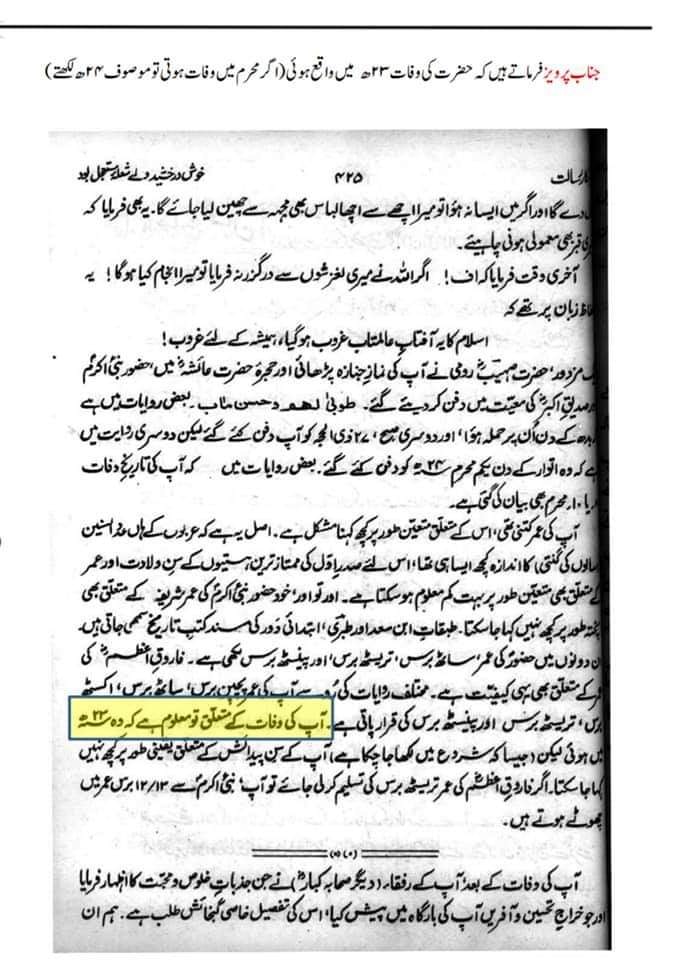 جناب پرویز فرماتے ہیں کہ حضرت کی وفات ۲۳ھ میں واقع ہوئی (اگر محرم میں وفات ہوتی تو موصوف ۲۴ھ لکھتے)
رسالت ۴۲۵ خوش درخشید ولے شعلۂ مستعجل بود
دے گا اور اگر میں ایسا نہ ہوا تو میرا اچھے سے اچھا لباس بھی مجھ سے چھین لیا جائے گا۔ یہ بھی فرمایا کہ
قبر بھی معمولی ہونی چاہیئے۔
آخری وقت فرمایا کہ اف! اگر اللہ نے میری لغزشوں سے درگزر نہ فرمایا تو میرا انجام کیا ہوگا! یہ
زبان پر تھے کہ
اسلام کا یہ آفتابِ عالمتاب غروب ہوگیا، ہمیشہ کے لئے غروب!
مزدور، حضرت صہیبؓ رومی نے آپ کی نمازِ جنازہ پڑھائی اور حجرۂ حضرت عائشہؓ میں، حضور نبی اکرمؐ
صدیقِ اکبرؓ کی معیت میں دفن کر دیئے گئے۔ طوبیٰ لھم و حسن مآب۔ بعض روایات میں ہے
کے دن اُن پر حملہ ہوا، اور دوسری صبح، ۲۷ ذی الحجہ کو آپ دفن کئے گئے لیکن دوسری روایت میں
ہے کہ وہ اتوار کے دن یکم محرم ۲۴ھ کو دفن کئے گئے۔ بعض روایات میں کہ آپ کی تاریخِ وفات
۱۰ محرم بھی بیان کی گئی ہے۔
آپ کی عمر کتنی تھی، اس کے متعلق متعین طور پر کچھ کہنا مشکل ہے۔ اصل یہ ہے کہ عربوں کے ہاں
سالوں کی گنتی کا اندازہ کچھ ایسا ہی تھا، اس لئے صدرِ اوّل کی ممتاز ترین ہستیوں کے سنِ ولادت اور عمر
کے متعلق بھی متعین طور پر بہت کم معلوم ہو سکتا ہے۔ اور تو اور، خود حضور نبی اکرمؐ کی عمر شریف کے متعلق بھی
پختہ طور پر کچھ نہیں کہا جا سکتا۔ طبقات ابن سعد اور طبری، ابتدائی دَور کی مستند کتبِ تاریخ سمجھی جاتی ہیں۔
ان دونوں میں حضورؐ کی عمر، ساٹھ برس، تریسٹھ برس، اور پینسٹھ برس لکھی ہے۔ فاروقِ اعظمؓ کی
عمر کے متعلق بھی یہی کیفیت ہے۔ مختلف روایات کی رُو سے آپ کی عمر پچپن برس، ساٹھ برس، اکسٹھ
برس، تریسٹھ برس اور پینسٹھ برس کی قرار پاتی ہے۔ آپ کی وفات کے متعلق تو معلوم ہے کہ وہ ۲۳ھ
میں ہوئی لیکن (جیسا کہ شروع میں لکھا جا چکا ہے) آپ کے سنِ پیدائش کے متعلق یقینی طور پر کچھ نہیں
کہا جا سکتا۔ اگر فاروقِ اعظمؓ کی عمر تریسٹھ برس کی تسلیم کر لی جائے تو آپ، نبی اکرمؐ سے ۱۲/۱۳ برس عمر میں
چھوٹے ہوتے ہیں۔
آپ کی وفات کے بعد، آپ کے رفقاء (دیگر صحابہ کبارؓ) نے جن جذباتِ خلوص و محبت کا اظہار فرمایا
اور جو خراجِ تحسین و آفریں آپ کی بارگاہ میں پیش کیا، اس کی تفصیل خاصی گنجائش طلب ہے۔ ہم ان